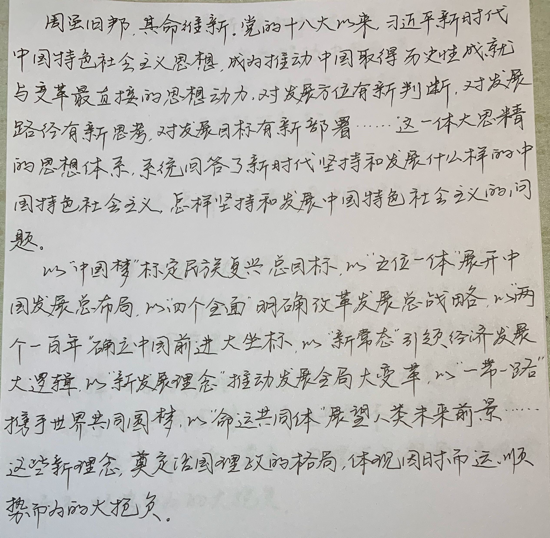 周虽旧邦,其命维新.党的十八大以来,习近平新时代
中国特色社会主义思想,成为推动中国取得历史性成就
与变革最直接的思想动力.对发展方位有新判断,对发展
路径有新思考,对发展目标有新部署……这一体大思精
的思想体系,系统回答了新时代坚持和发展什么样的中
国特色社会主义,怎样坚持和发展中国特色社会主义的问
题。
以“中国梦”标定民族复兴总目标,以“五位一体”展开中
国发展总布局,以“四个全面”明确改革发展总战略,以“两
个一百年”确立中国前进大坐标,以“新常态”引领经济发展
大逻辑,以“新发展理念”推动发展全局大变革,以“一带一路”
携手世界共同圆梦,以“命运共同体”展望人类未来前景……
这些新理念,奠定治国理政的格局,体现因时而运、顺
势而为的大抱负。